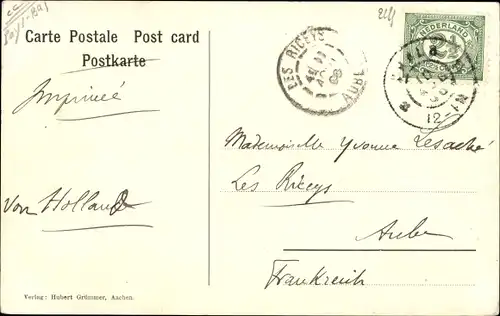 Carte Postale Post card
Postkarte
NEDERLAND
LES RICEYS
AUBE
Imprimé
Mademoiselle Yvonne Lesaché
Les Riceys
Von Holland
Aube
Frankreich
Verlag: Hubert Grümmer, Aachen.